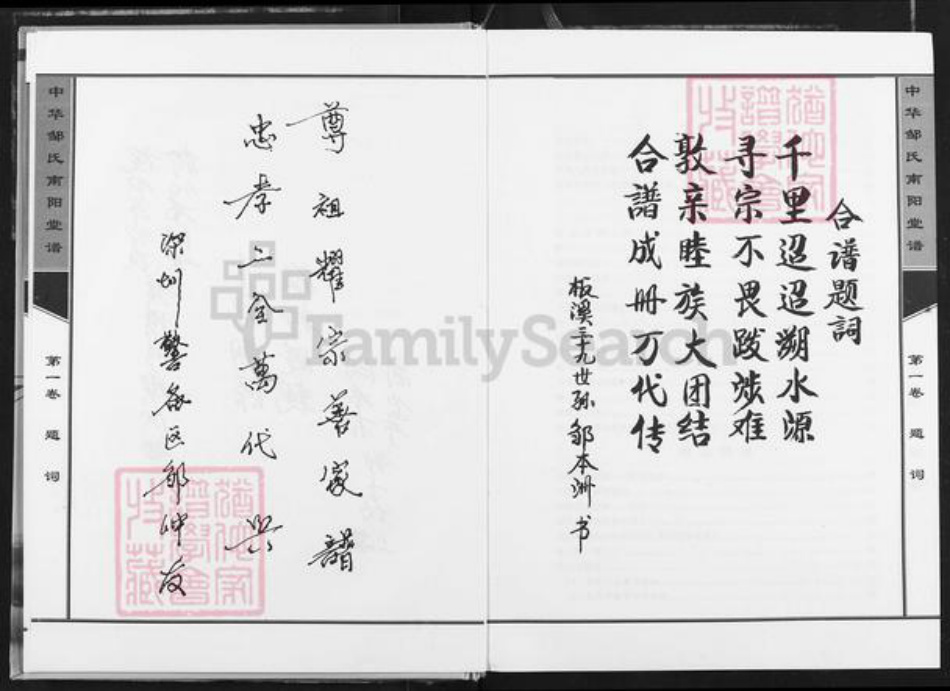 中华邹氏南阳堂谱
第一卷 题词
合譜题詞
千里迢迢溯水源
寻宗不畏跋涉难
敦亲睦族大团结
合譜成册万代传
板溪三十九世孙邹本洲书
尊祖耀宗善家譜
忠孝二全萬代兴
深圳警备区邹仲友
中华邹氏南阳堂谱
第一卷 题词
FamilySearch